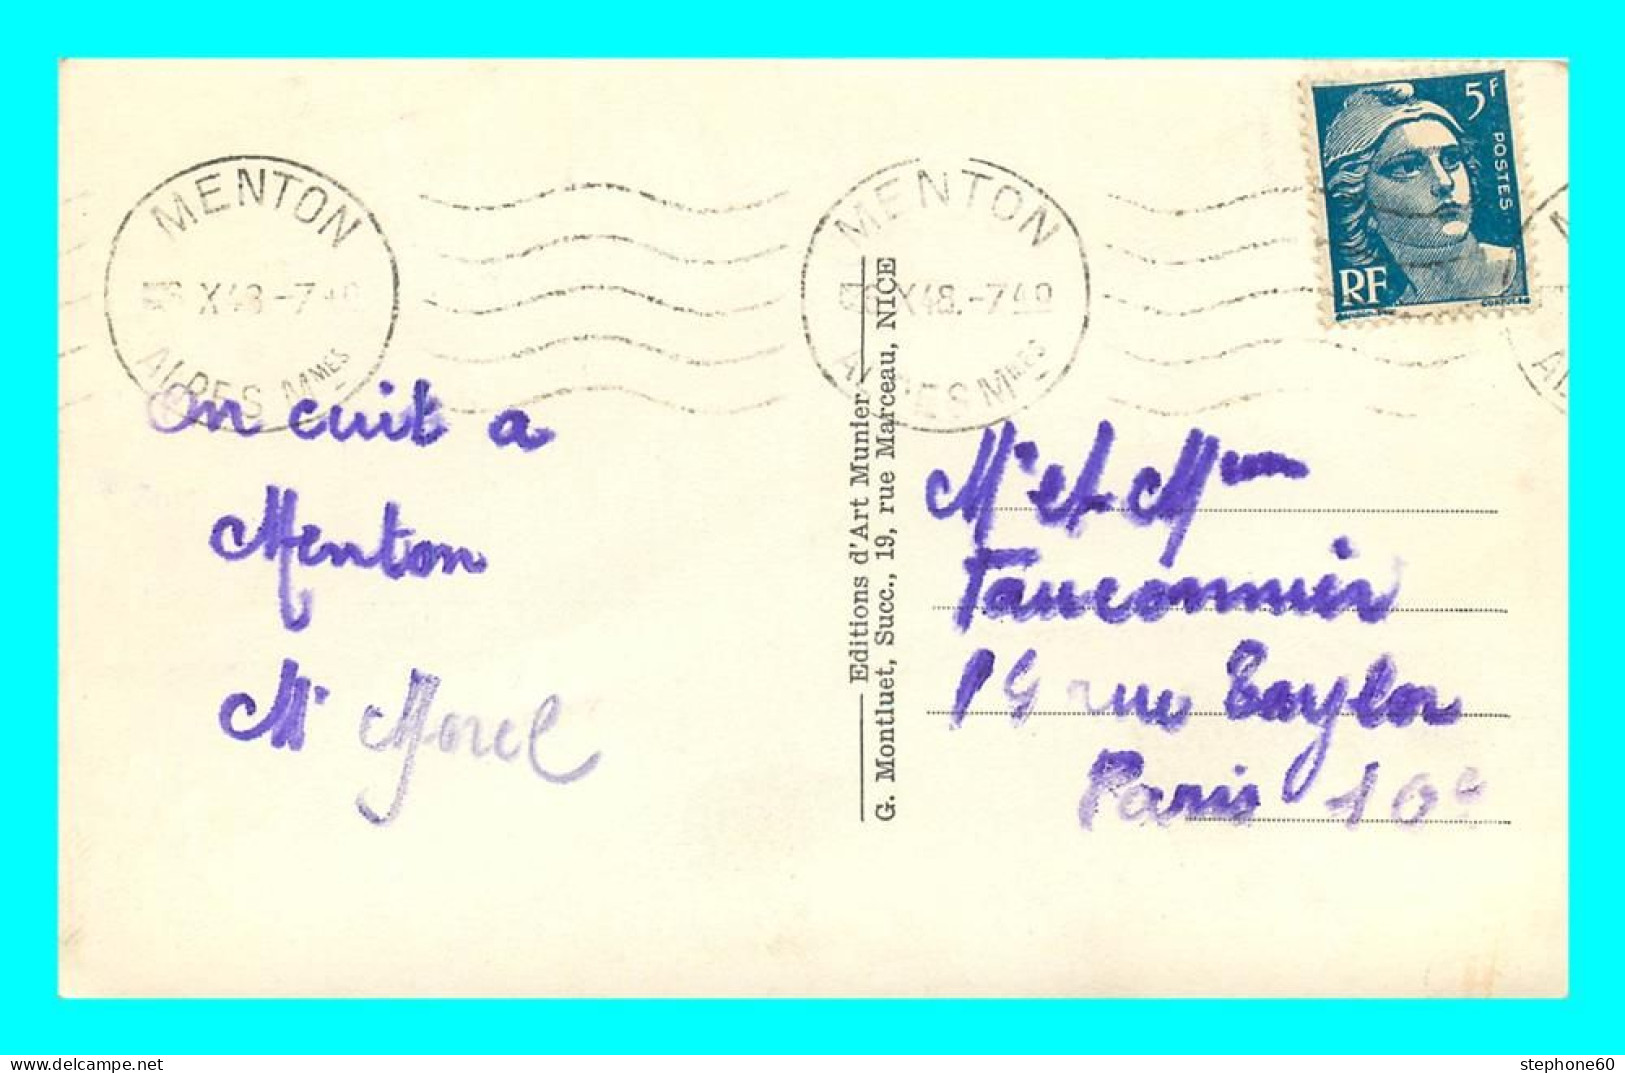 MENTON
X48.-7 40
ALPES MMES
MENTON
X48.-7 40
ALPES MMES
5F
POSTES
RF
On cuit a
Menton
Mr Morel
Editions d'Art Munier
G. Montluet, Succ., 19, rue Marceau, NICE
Mr et Mme
Fauconnier
19 rue Taylor
Paris 10e
stephone60